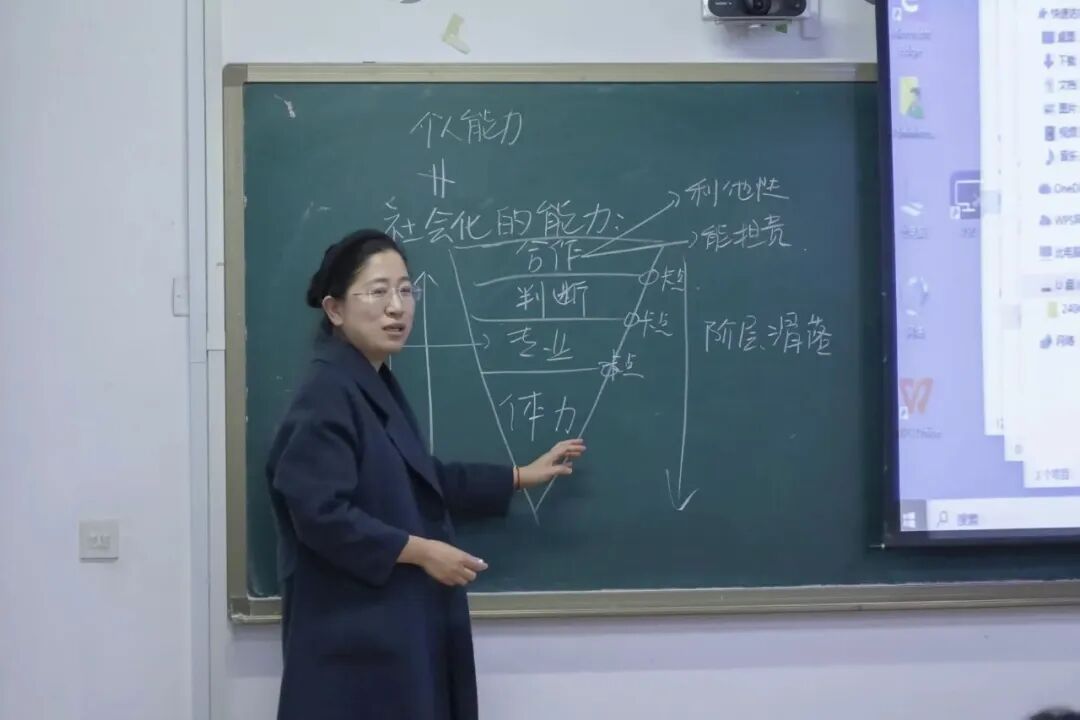 个人能力
社会化的能力:
利他性
能担责
合作
卡点
判断
卡点
专业
卡点
体力
阶层滑落
快速访
桌面
下载
文档
图片
视频
音乐
OneD
WPS
此电脑
U盘
网络
搜索